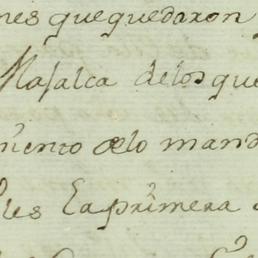 nes que quedaron
Masalca delos que
miento delo mand
les La primera